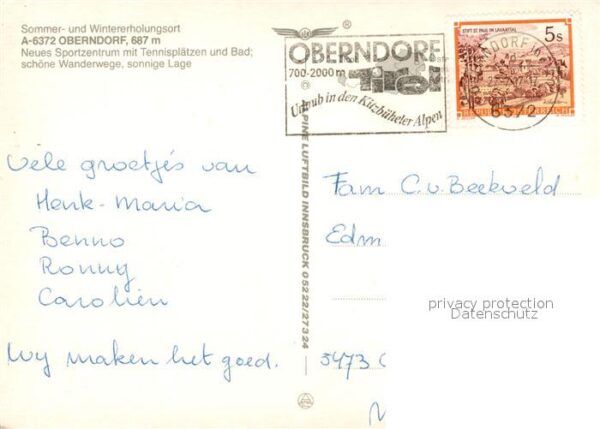 Sommer- und Wintererholungsort
A-6372 OBERNDORF, 687 m
Neues Sportzentrum mit Tennisplätzen und Bad;
schöne Wanderwege, sonnige Lage
OBERNDORF
700-2000 m Tirol
Urlaub in den Kitzbüheler Alpen
STIFT ST. PAUL IM LAVANTTAL
5s
6372
ALPINE LUFTBILD INNSBRUCK 05222/27324
Vele groetjes van
Henk-Maria
Benno
Ronny
Carolien
Wy maken het goed.
Fam C.v. Beekveld
Edm
5473
privacy protection
Datenschutz